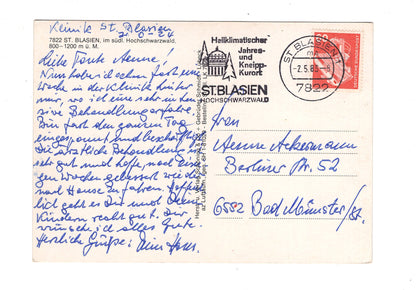 Klinik St. Blasien
7822 ST. BLASIEN, im südl. Hochschwarzwald,
800–1200 m ü. M.
Liebe Tante Aenne!
Nun habe ich schon fast eine
Woche in der Klinik hinter
mir, wo ich eine sehr inten-
sive Behandlung erfahre.
Bin fast den ganzen Tag
eingespannt und beschäftigt.
Die ärztliche Behandlung ist
sehr gut und hoffe, nach eini-
gen Wochen gebessert wieder
nach Hause zu fahren. Hoffent-
lich geht es Dir und Deinen
Kindern recht gut. Dir
wünsche ich alles Gute.
Herzliche Grüße! Dein
Heilklimatischer
Jahres-
und Kneipp-
Kurort
ST. BLASIEN
HOCHSCHWARZWALD
ST. BLASIEN 1
-2.5.8
7822
60
Frau
Aenne Ackermann
Berliner Str. 52
6552 Bad Münster/St.